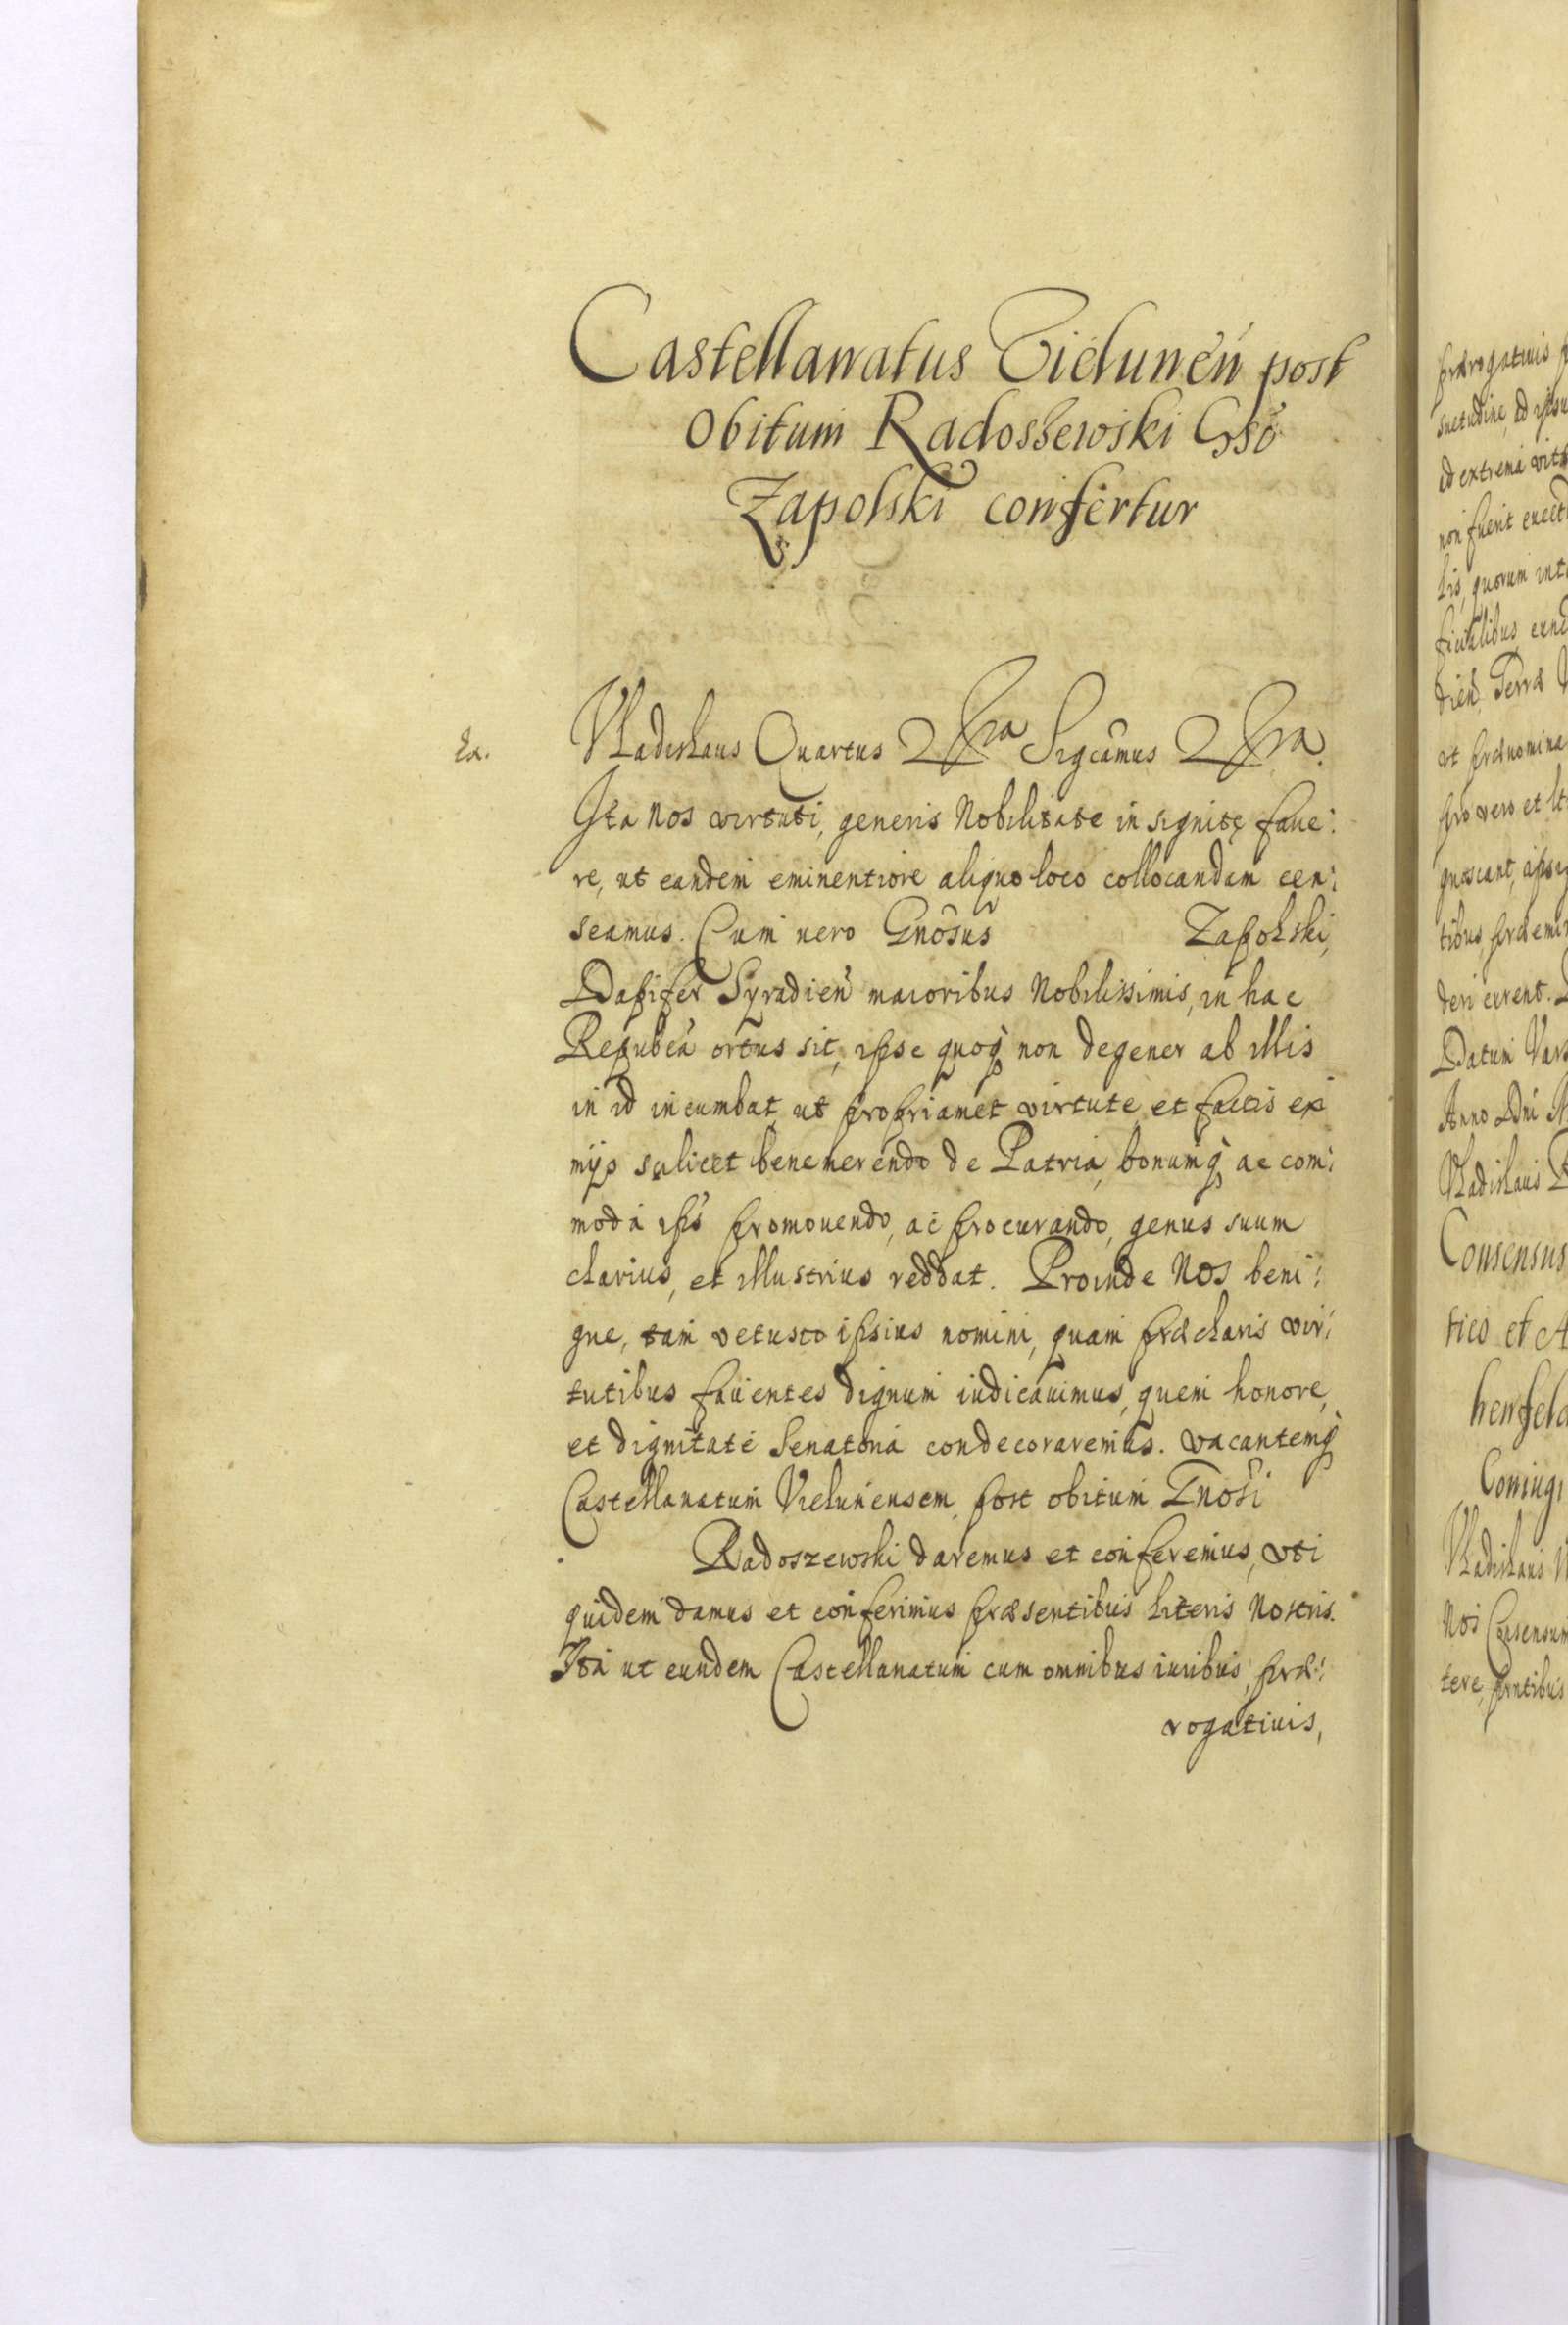 Castellanatus Vielunen̄ post
Obitum Radossewski Gn̄so
Zapolski confertur
Ea.
Vladislaus Quartus &ra Sigcamus &ra.
Ita nos virtuti, generis Nobilitate insignitę faue:
re, ut eandem eminentiore aliquo loco collocandam cen:
seamus. Cum uero Gnōsus Zapolski,
Dapifer Syradien̄ maioribus Nobilissimis, in hac
Repubcā ortus sit, ipse quoq̀ non degener ab illis
in id incumbat, ut propriamet virtute et factis exi
mijs scilicet benemerendo de Patria, bonumq̀ ac com:
moda ips̄s promouendo, ac procurando, genus suum
clarius, et illustrius reddat. Proinde Nos beni:
gne, tam vetusto ipsius nomini, quam præclaris vir:
tutibus fauentes dignum iudicauimus, quem honore,
et dignitate Senatoria condecoraremus. vacantemq̀
Castellanatum Vielunensem, post obitum Gnōsi
Radoszewski daremus et conferemus, vti
quidem damus et conferimus præsentibus literis Nostris.
Ita ut eundem Castellanatum cum omnibus iuribus, præ:
rogatiuis,
prærogatiuis
suetudine, ad
ad extrema
non fuerit
lis, quorum
dien̄, Terræ
ut prænomina
pro vero et
tibus, præ
deri curent.
Datum
Anno Dn̄i
Vladislaus
Consensus
tico et A
Coniugi
Vladislaus
Nos Consensum
tere, pn̄tibus